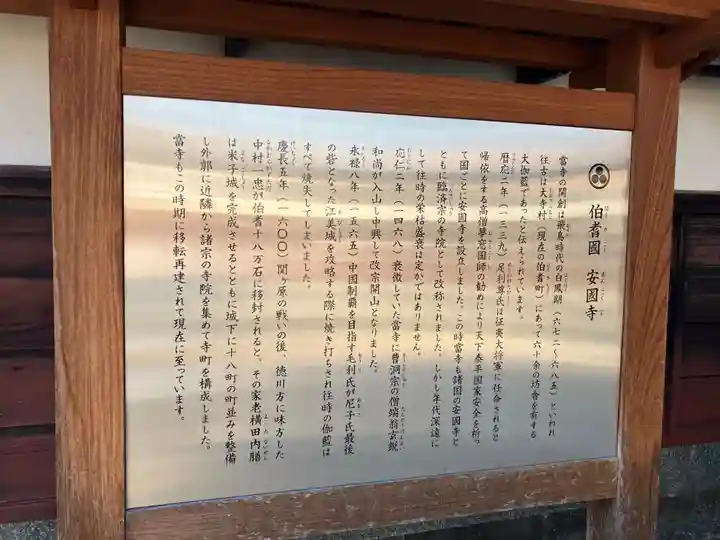 伯耆國 安國寺
當寺の開創は飛鳥時代の白鳳期(六七二〜六八五)といわれ
往古は大寺村(現在の伯耆町)にあって六十余の坊舎を有する
大伽藍であったと伝えられています。
暦応二年(一三三九)足利尊氏は征夷大将軍に任命されると
帰依をする高僧夢窓国師の勧めにより天下泰平国家安全を祈っ
て国ごとに安国寺を設立しました。この時當寺も諸国の安国寺と
ともに臨済宗の寺院として改称されました。しかし年代深遠に
して往時の栄枯盛衰は定かではありません。
応仁二年(一四六八)衰微していた當寺に曹洞宗の僧端翁玄鋭
和尚が入山し中興して改宗開山となりました。
永禄八年(一五六五)中国制覇を目指す毛利氏が尼子氏最後
の砦となった江美城を攻略する際に焼き打ちされ往時の伽藍は
すべて焼失してしまいました。
慶長五年(一六〇〇)関ヶ原の戦いの後、徳川方に味方した
中村一忠が伯耆十八万石に移封されると。その家老横田内膳
は米子城を完成させるとともに城下に十八町の町並みを整備
し外郭に近隣から諸宗の寺院を集めて寺町を構成しました。
當寺もこの時期に移転再建されて現在に至っています。